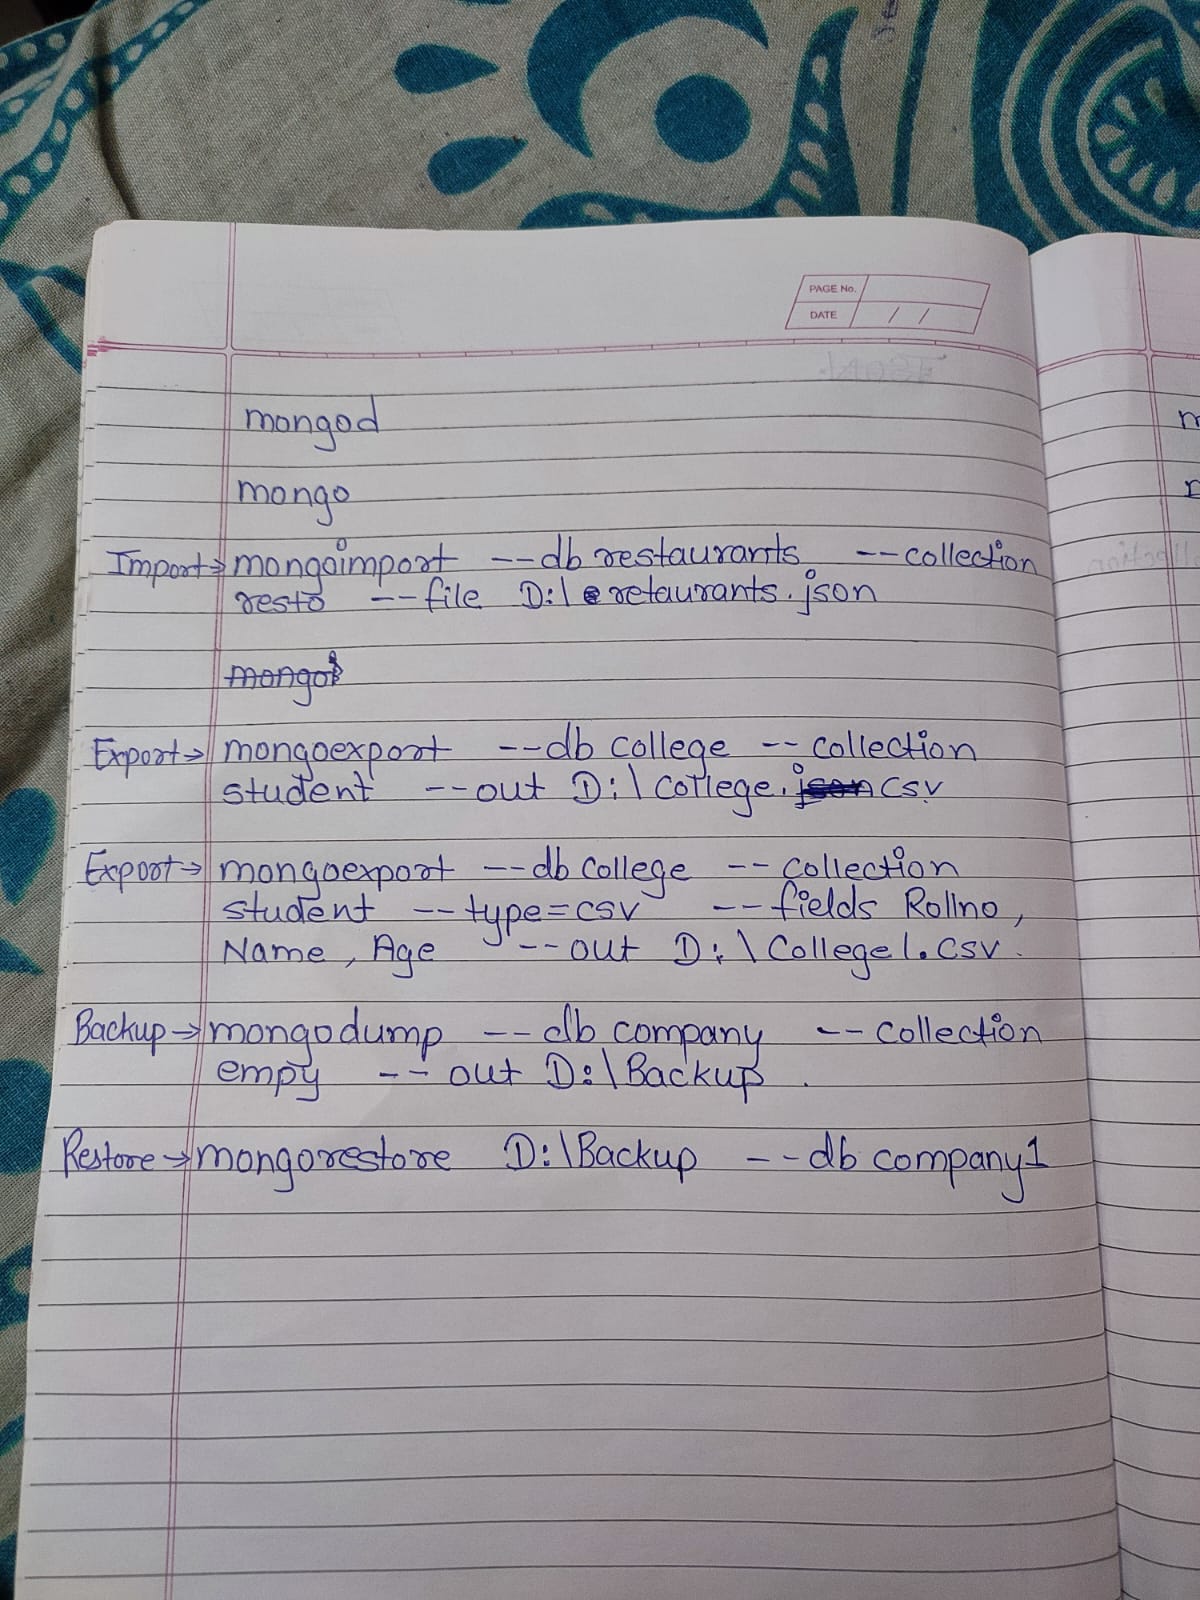 PAGE No.
DATE / /
mongod
mongo
Import→ mongoimport --db restaurants --collection
resto --file D:\ retaurants.json
Export→ mongoexport --db college --collection
student --out D:\ College.csv
Export→ mongoexport --db College -- collection
student --type=csv --fields Rollno,
Name, Age --out D:\College1.csv.
Backup→ mongodump --db company -- collection
empy -- out D:\Backup.
Restore→ mongorestore D:\Backup --db company1